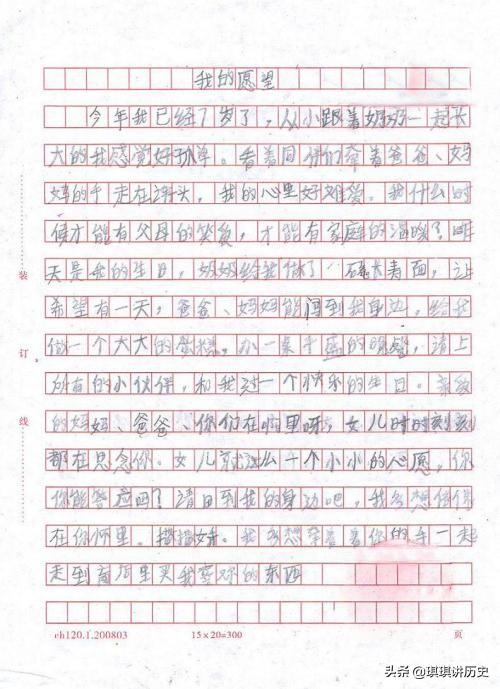 我的愿望
今年我已经7岁了,从小跟着妈妈一起长
大的我感觉好孤单。看着同伴们牵着爸爸、妈
妈的手走在街头,我的心里好难受。我什么时
候才能有父母的笑,才能有家庭的温暖?昨
天是我的生日,妈妈给我做了一碗长寿面,
希望有一天,爸爸、妈妈能回到我身边,给我
做一个大大的蛋糕,办一桌丰盛的晚餐,请上
所有的小伙伴,和我过一个快乐的生日。亲爱
的妈妈、爸爸、你们在哪里呀,女儿时时刻刻
都在思念你。女儿就这么一个小小的心愿,你
你能答应吗?请回到我的身边吧,我多想依偎
在你怀里。我多想牵着着你的手一起
走到商场里买我喜欢的东西
装
订
线
ch120.1.200803 15×20=300 页
头条 @琪琪讲历史